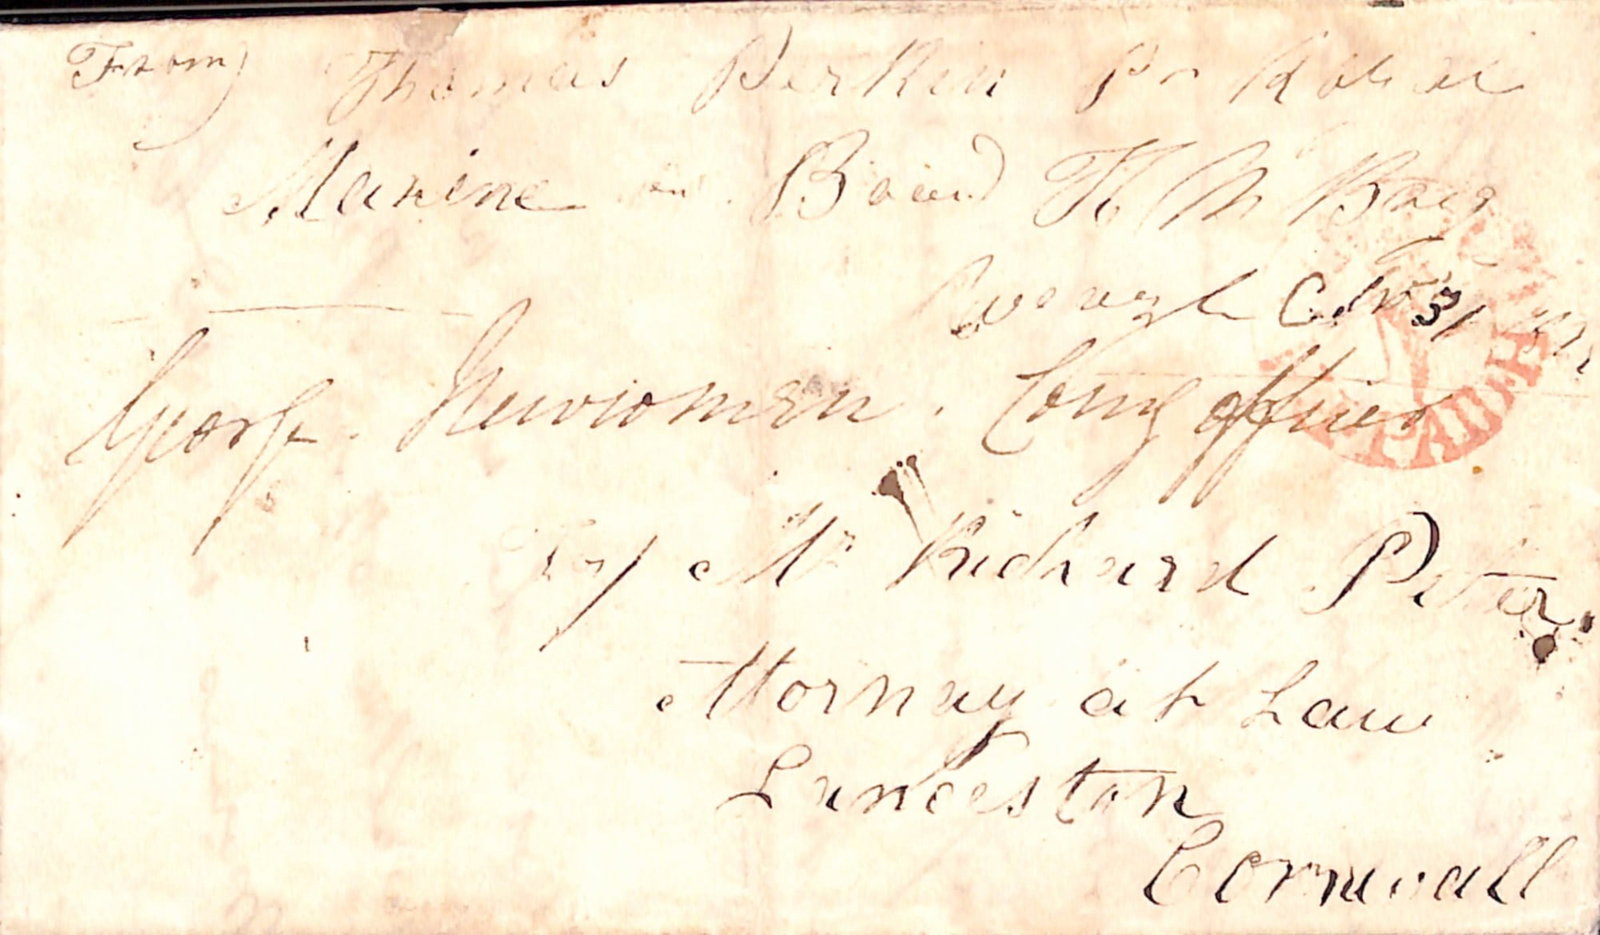 From Thomas Perkin Pr Royal
Marine on Board H M Brig
George Newwomen. Comg officer
To Mr Richard Peter
Attornay at Law
Lanceston
Cornwall
PAID